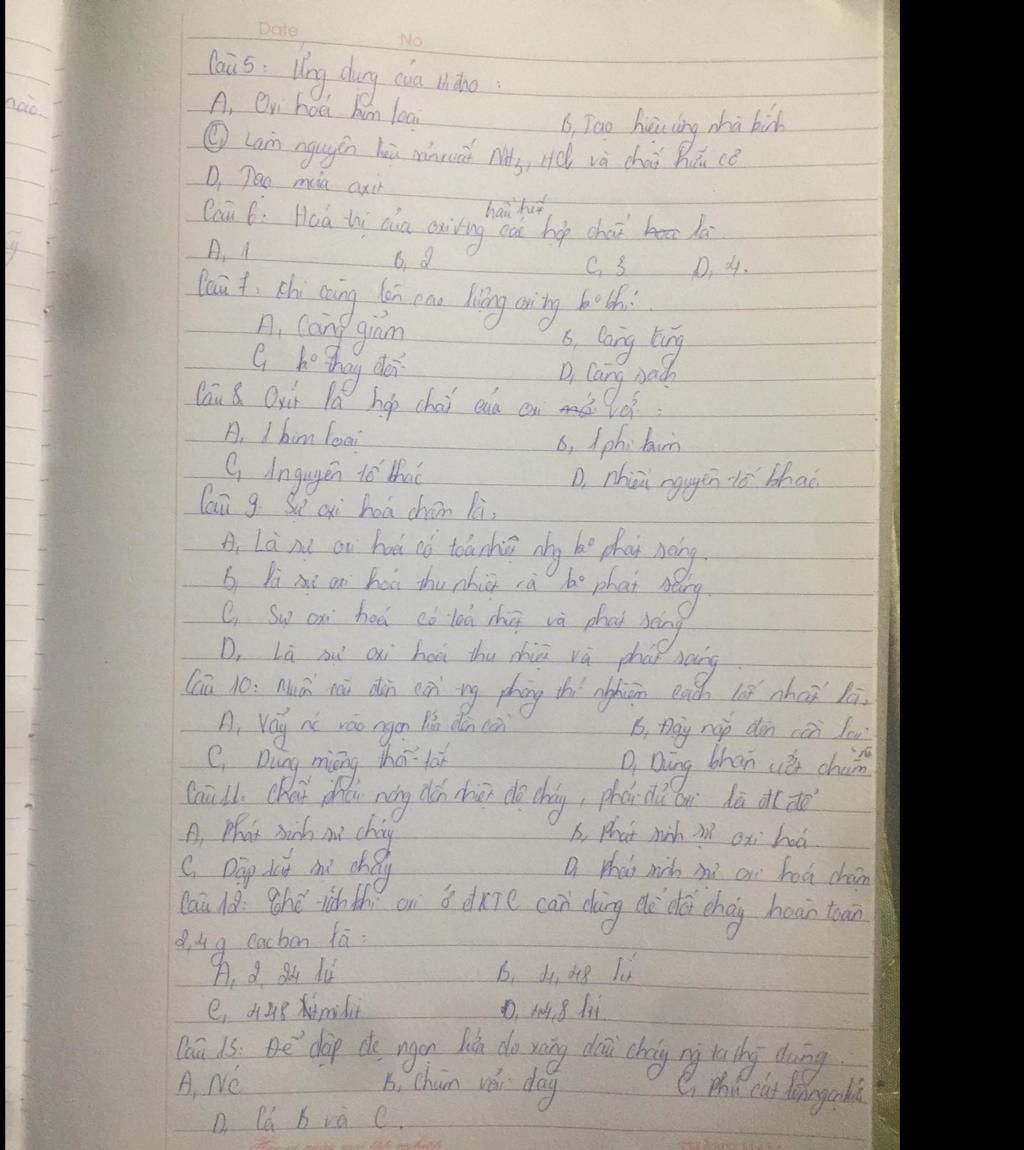 Date No
Câu 5: Ứng dụng của Hiđro :
A, Oxi hoá kim loại B, Tạo hiệu ứng nhà kính
C, Làm nguyên liệu sản xuất NH3, HCl và chất hữu cơ
D, Tạo mưa axit
Câu 6: Hoá trị của oxi trg hầu hết các hợp chất là
A, 1 B, 2 C, 3 D, 4.
Câu 7: Khi càng lên cao lượng oxi trg ko khí:
A, Càng giảm B, Càng tăng
C, ko thay đổi D, Càng sạch
Câu 8. Oxit là hợp chất của oxi với :
A, 1 kim loại B, 1 phi kim
C, 1 nguyên tố khác D, nhiều nguyên tố khác.
Câu 9. Sự oxi hoá chậm là:
A, Là sự oxi hoá có toả nhiệt nhg ko phát sáng.
B, là sự oxi hoá thu nhiệt và ko phát sáng.
C, Sự oxi hoá có toả nhiệt và phát sáng
D, Là sự oxi hoá thu nhiệt và phát sáng.
Câu 10: Muốn tắt đèn cồn trg phòng thí nghiệm cách tốt nhất là:
A, Vẩy nc vào ngọn lửa đèn cồn B, Đậy nắp đèn cồn lại
C, Dùng miệng thổi tắt D, Dùng khăn ướt chùm
Câu 11. Chất phải nóng đến nhiệt độ cháy, phải đủ oxi là đk để
A, Phát sinh sự cháy B, Phát sinh sự oxi hoá.
C, Dập tắt sự cháy D, Phát sinh sự oxi hoá chậm
Câu 12: Thể tích khí oxi ở đKTC cần dùng để đốt cháy hoàn toàn
2,4 g cacbon là:
A, 2,24 lít B, 4,48 lít
C, 448 mililit D, 44,8 lít.
Câu 13: Để dập tắt ngọn lửa do xăng dầu cháy ng ta thg dùng
A, Nc B, Chùm vải dày C, Phủ cát lên ngọn lửa
D, Cả B và C.